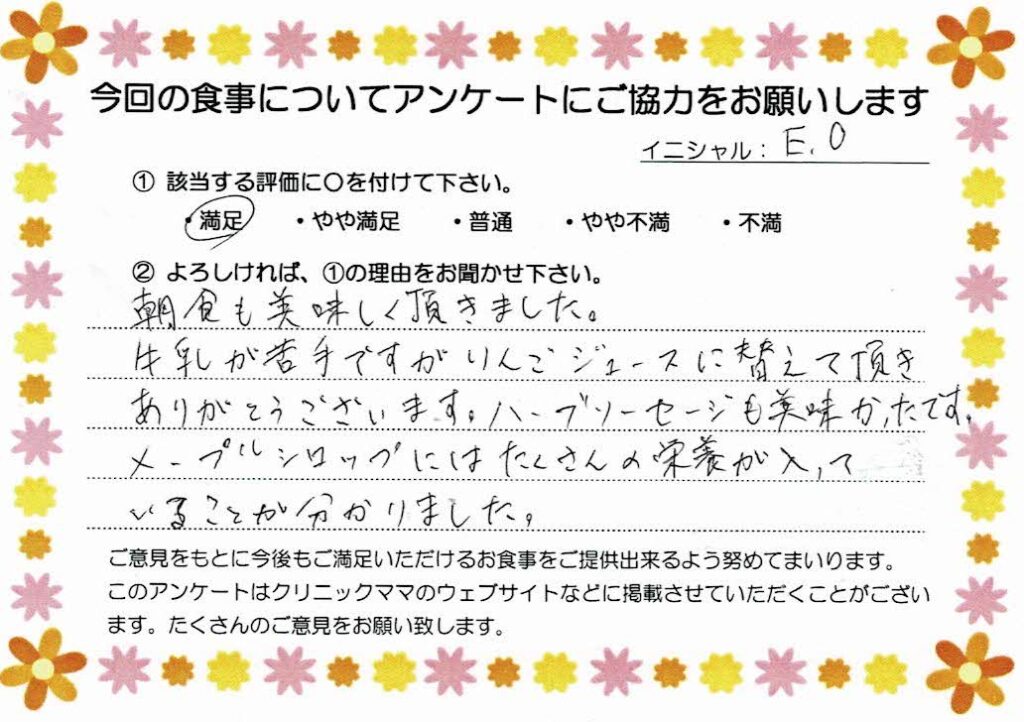 今回の食事についてアンケートにご協力をお願いします
イニシャル： E.O
① 該当する評価に〇を付けて下さい。
・満足 ・やや満足 ・普通 ・やや不満 ・不満
② よろしければ、①の理由をお聞かせ下さい。
朝食も美味しく頂きました。
牛乳が苦手ですがりんごジュースに替えて頂き
ありがとうございます。ハーブソーセージも美味かったです。
メープルシロップにはたくさんの栄養が入って
いることが分かりました。
ご意見をもとに今後もご満足いただけるお食事をご提供出来るよう努めてまいります。
このアンケートはクリニックママのウェブサイトなどに掲載させていただくことがござい
ます。たくさんのご意見をお願い致します。